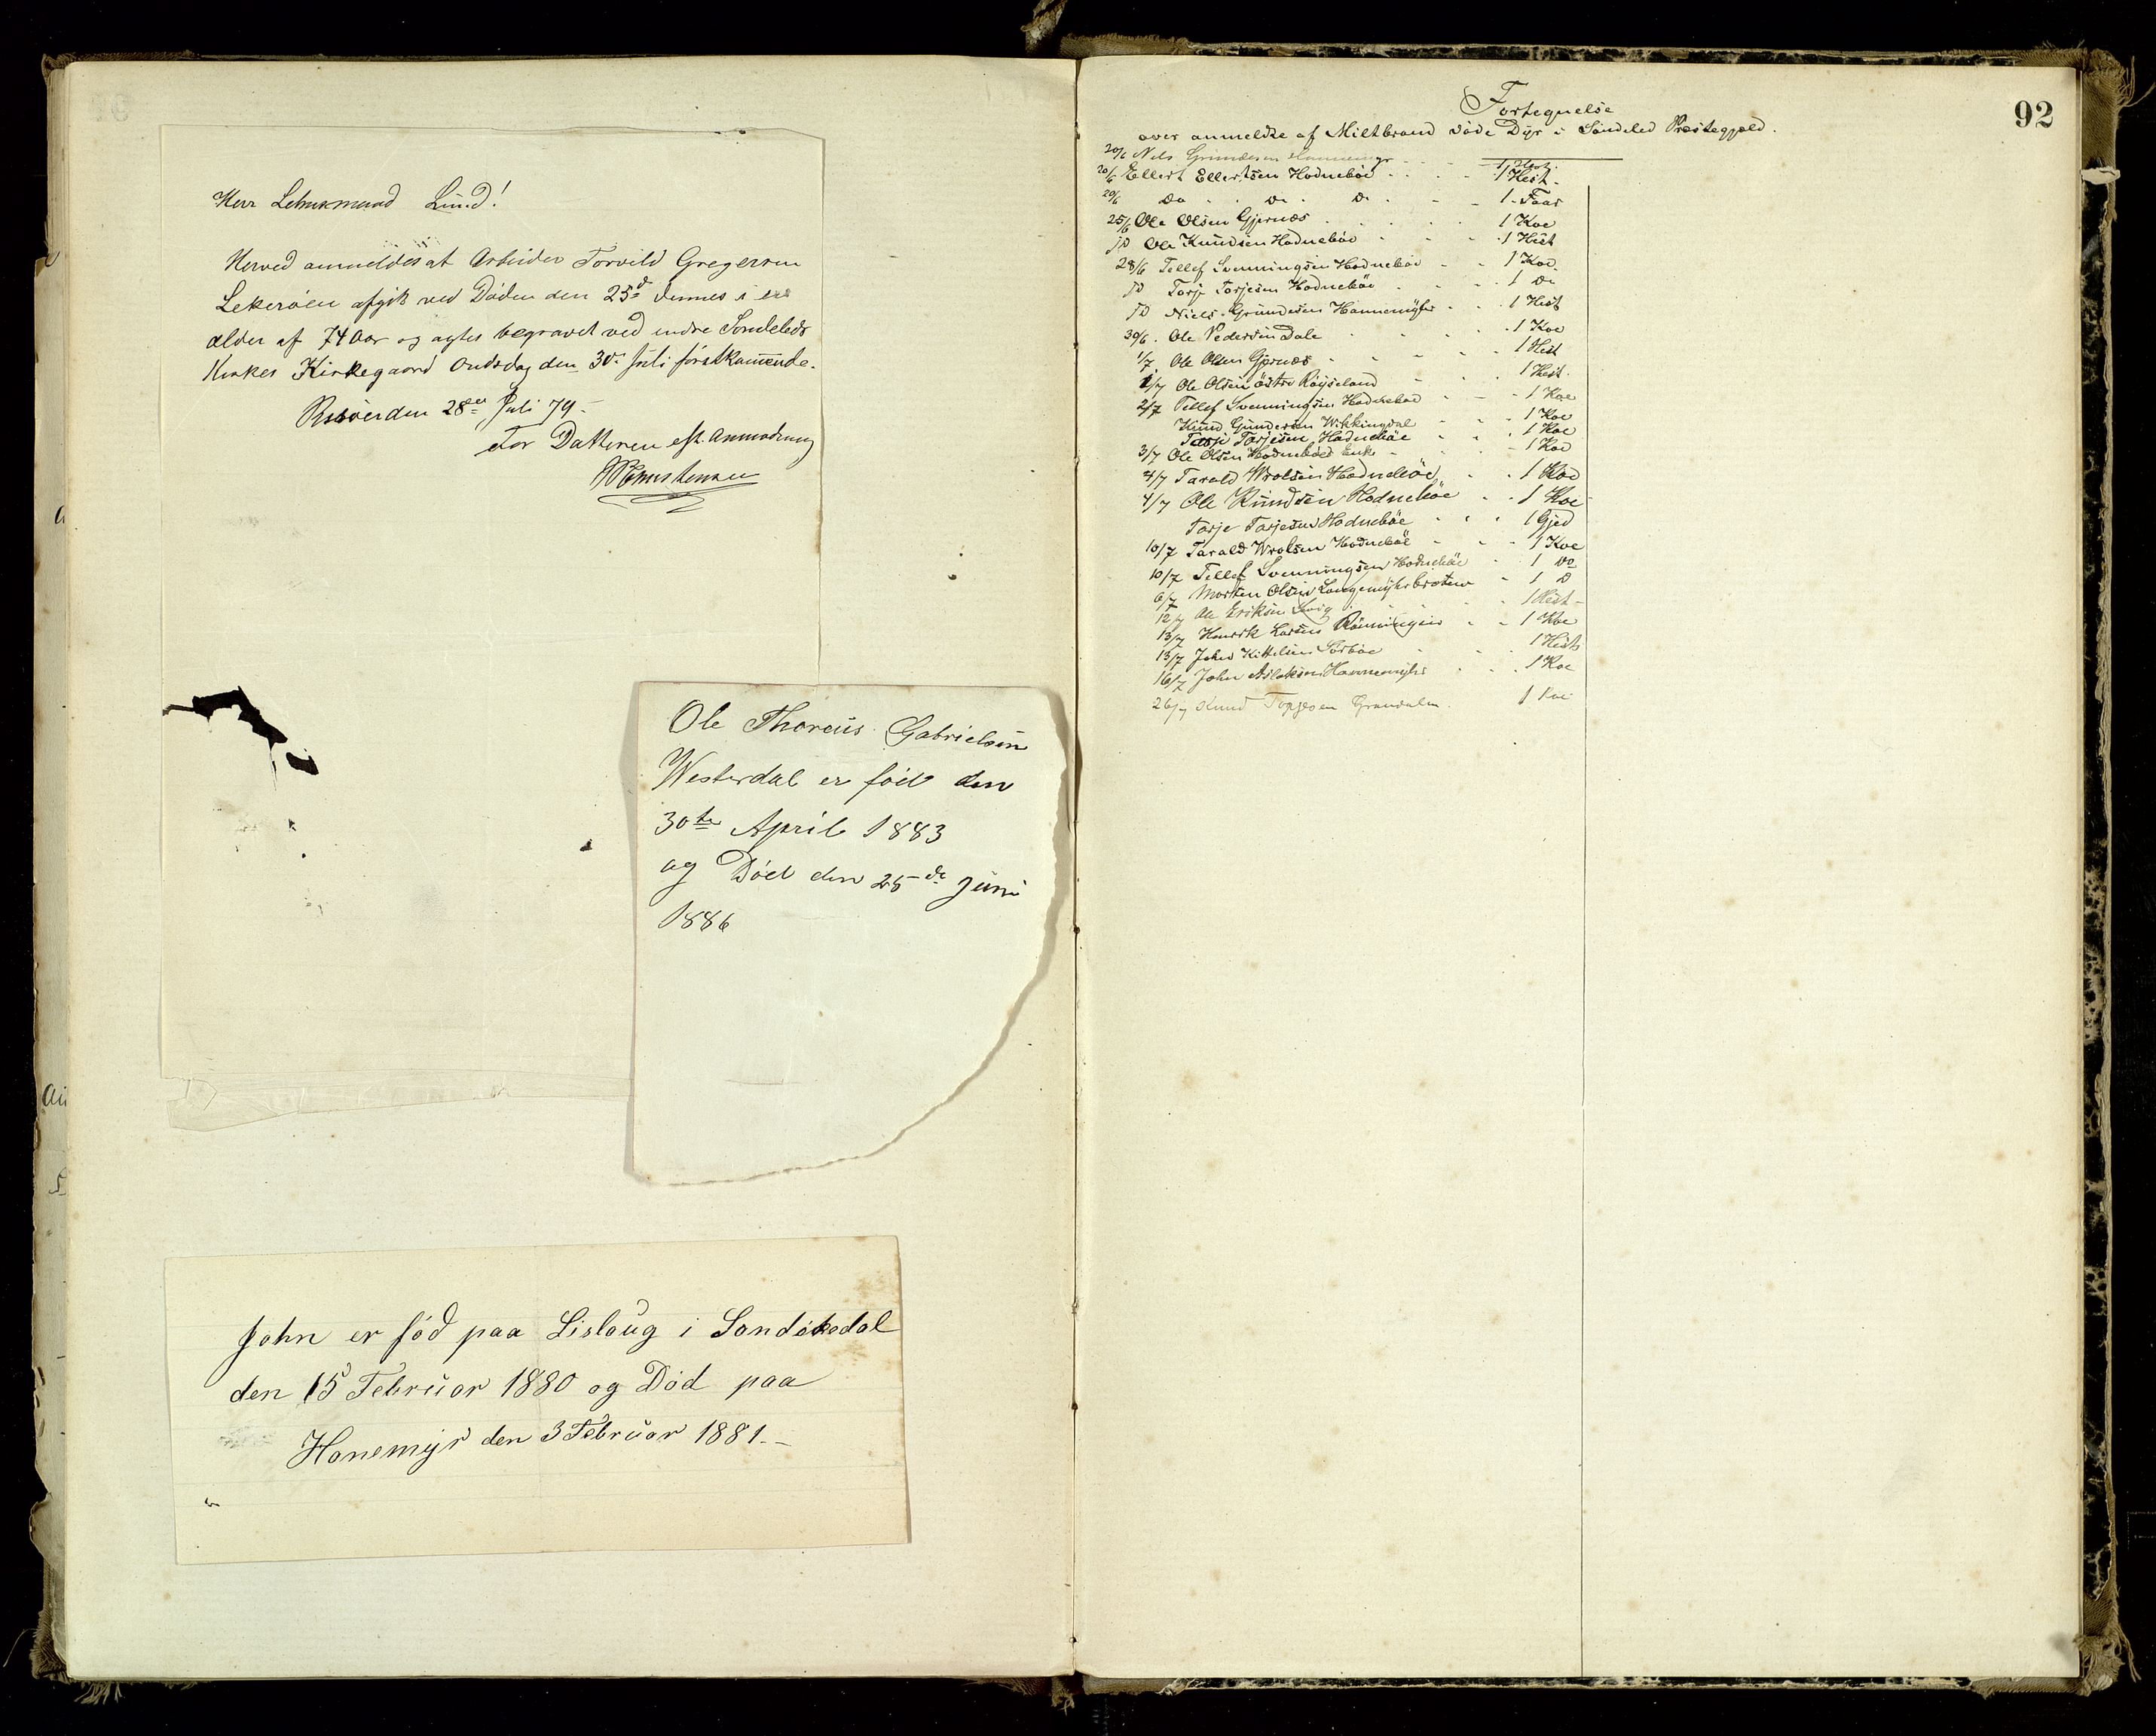 Herr Lehnsmand Lund!
Herved anmeldes at Arbeider Torvild Gregersen
Lekeröen afgik ved Döden den 25d dennes i en
alder af 74 Aar og agtes begravet ved indre Sondeleds
Kirkes Kirkegaard Onsdag den 30te Juli förstkommende.
Risöer den 28de Juli 79.
For Datteren eft. Anmodning
Ole Thoreüs Gabrielsen
Westerdal er föd den
30te April 1883
og Död den 25de Juni
1886
John er föd paa Lislaüg i Sandökedal
den 15 Februar 1880 og Död paa
Hanemyr den 3 Februar 1881.-
92
Fortegnelse
over anmeldte af Miltbrand döde Dyr i Söndeled Præstegjæld.
20/6 Nils Gundersen Hannemyr - - - 1 Hest
20/6 Ellert Ellertsen Hodneböe - - - 1 Hest.
20/6 Do Do Do - - 1 Faar
25/6 Ole Olsen Gjernæs 1 Koe
JD Ole Knudsen Hodneböe - - - 1 Hest
28/6 Tellef Svenningsen Hodneböe - - 1 Koe
JD Torje Torjesen Hodneböe 1 Do
JD Niels Gundesen Hannemyhr - - 1 Hest
30/6. Ole Pedersen Dale 1 Koe
1/7. Ole Olsen Gjernæs - - - 1 Hest
2/7 Ole Olsen östre Röyseland - - 1 Hest.
2/7 Tellef Svenningsen Hodneböe - - 1 Koe
Knud Gundersen Wikkingdal 1 Koe
Tarje Tarjesen Hodneböe - - 1 Koe
3/7 Ole Olsen Hodneböes Enke - - 1 Koe
4/7 Tarald Wrolsen Hodneböe - - 1 Koe
4/7 Ole Knudsen Hodneböe - - 1 Koe
Tarje Tarjesen Hodneböe - - - 1 Gjed
10/7 Tarald Wrolsen Hodneböe - - 1 Koe
10/7 Tellef Svenningsen Hodneböe - 1 Do
6/7 Morten Olsen Langemyhrbraten - 1 D
12/7 Ole Eriksen - - - 1 Hest -
13/7 Henrik Larsen Rönningen - - 1 Koe
13/7 John Kittelsen Sörböe - 1 Hest
16/7 John Aslaksen Hannemyhr - - 1 Koe
26/7 Knud Torjesen Grandalen. 1 Koe